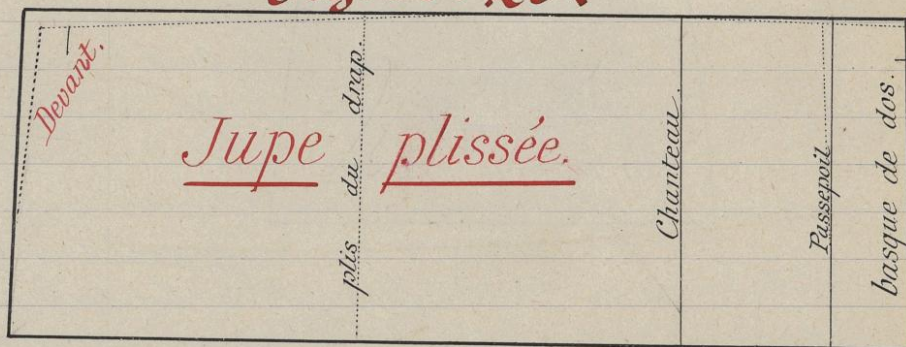 Devant.
Jupe plissée.
plis du drap.
Chanteau.
Passepoil
basque de dos.